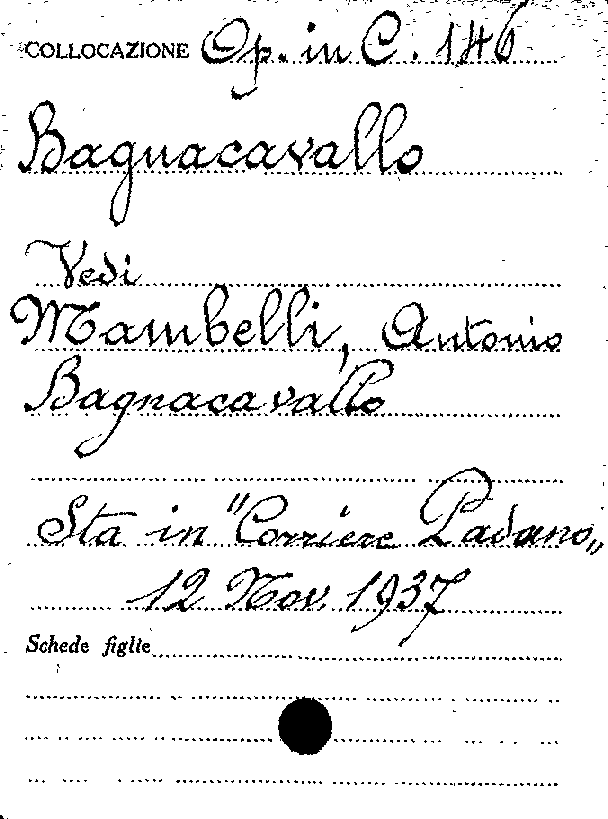 COLLOCAZIONE Op. in C. 146
Bagnacavallo
Vedi
Mambelli, Antonio
Bagnacavallo
Sta in "Corriere Padano„
12 Nov. 1937
Schede figlie